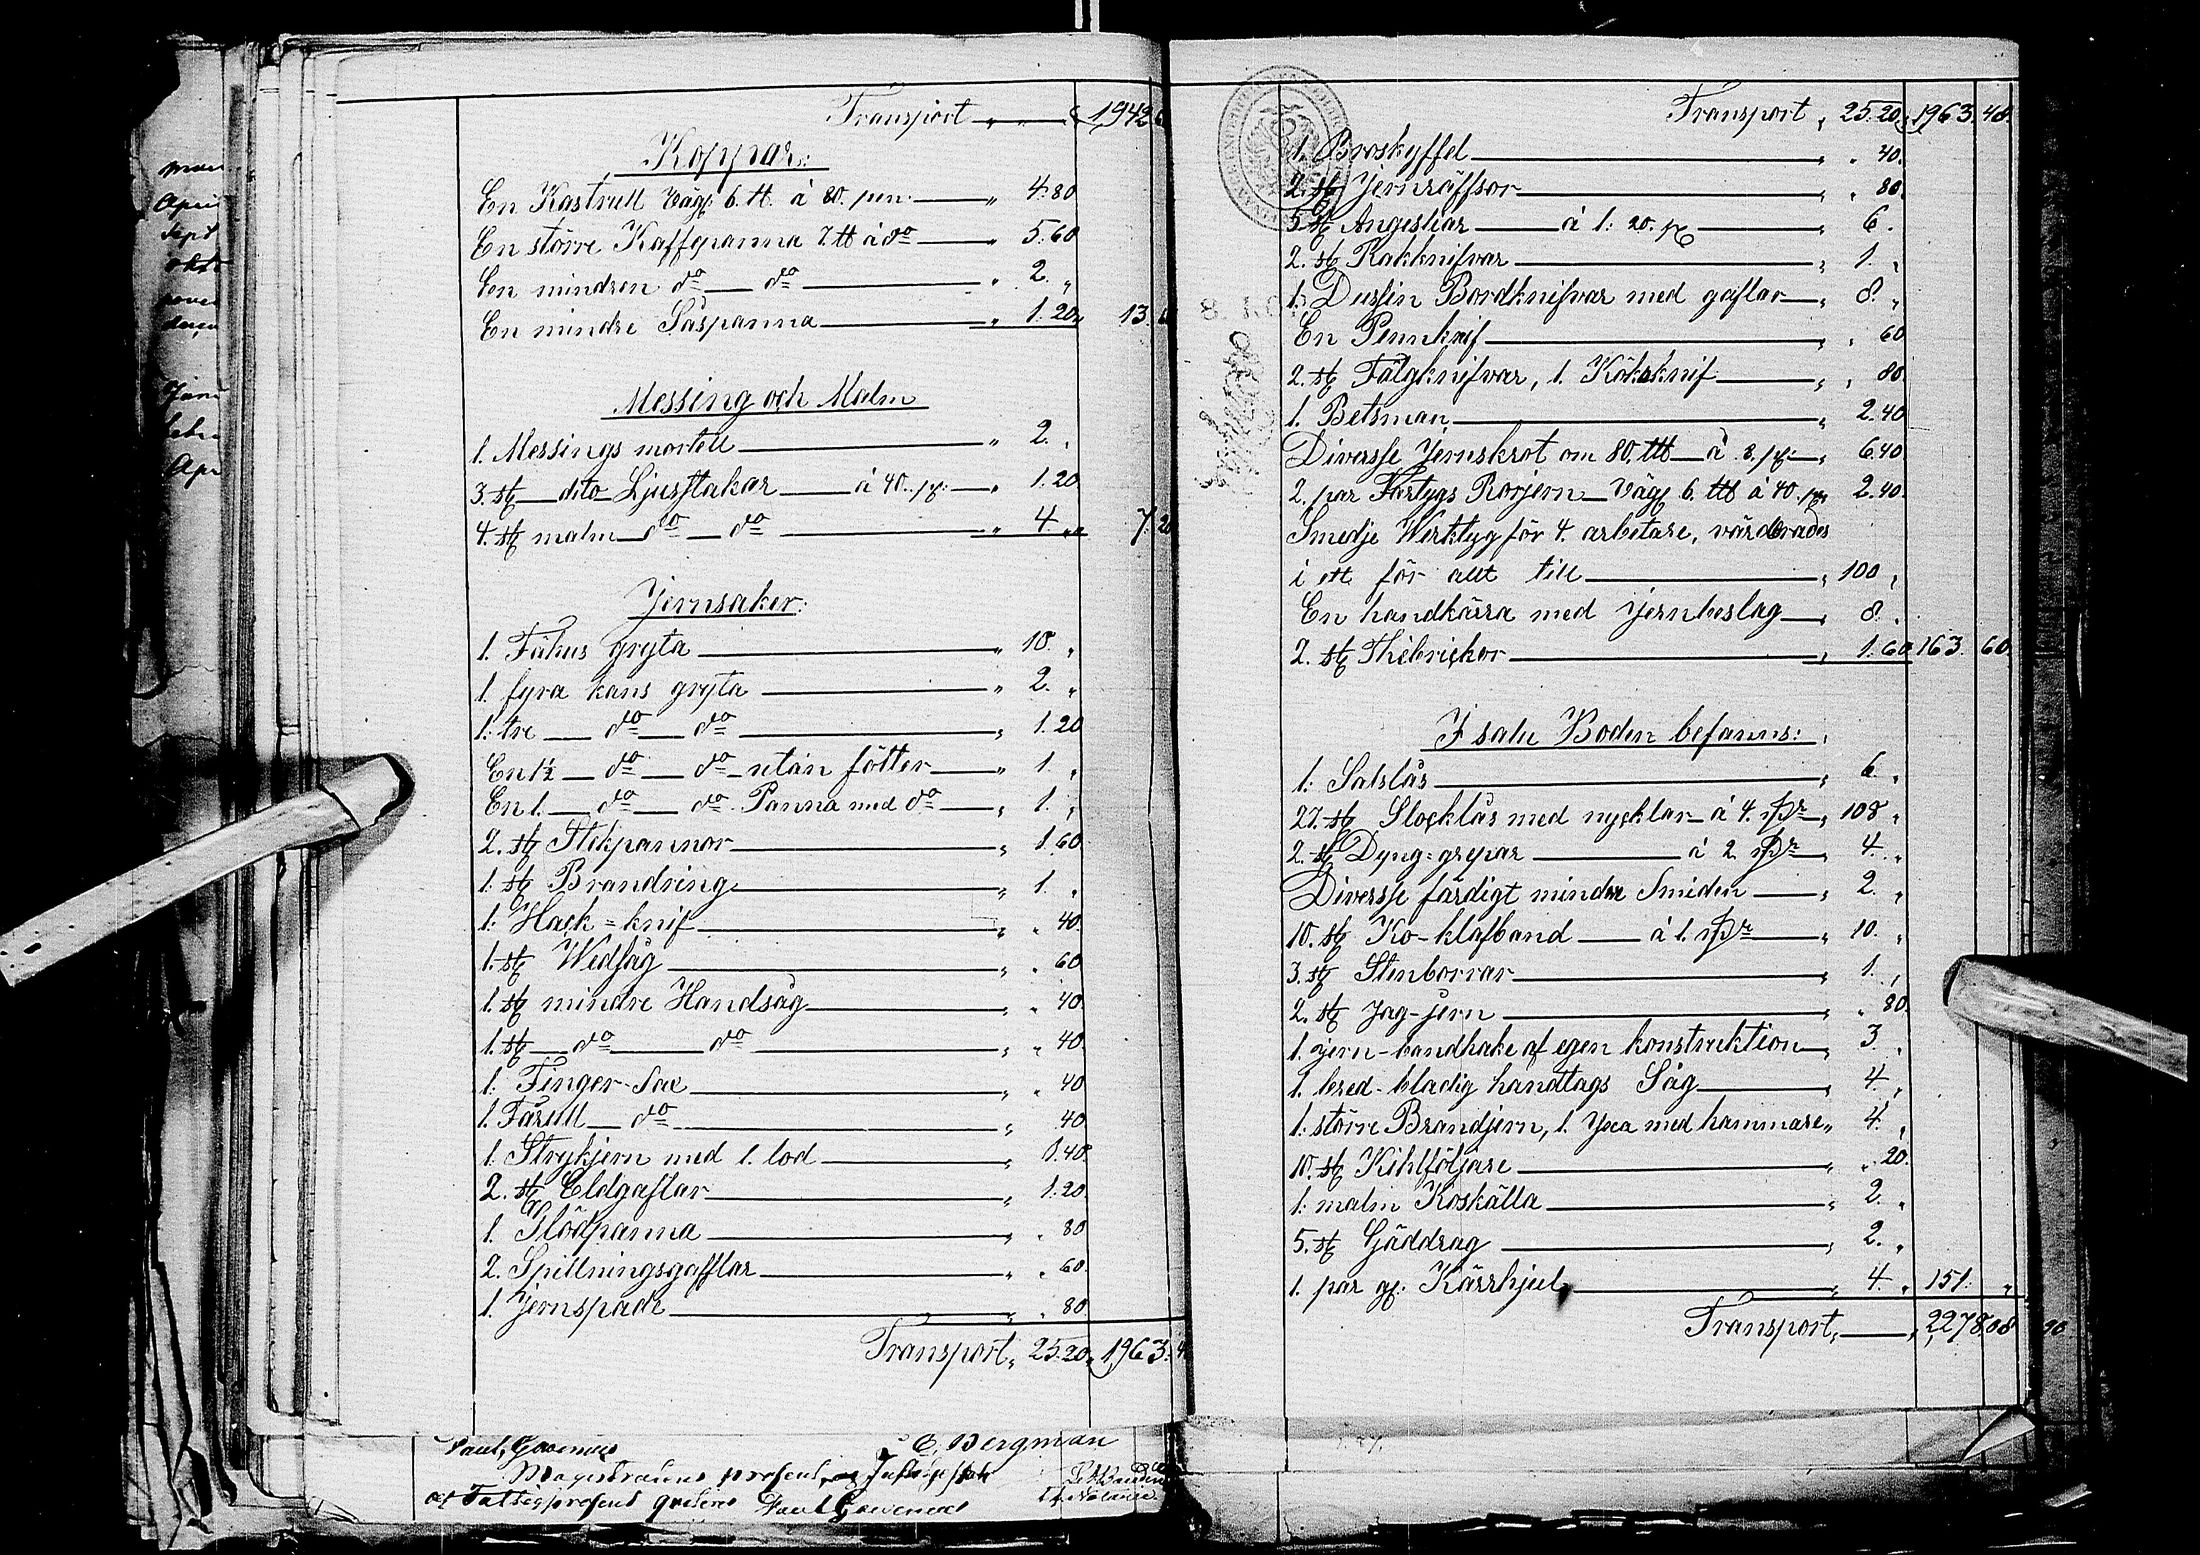 Transport „ „ 1942
Koppar:
En Kastrull väg. 6. tt. à 80. pen: „ 4.80
En större Kaffepanna 7. tt à do „ 5.60
En mindren do do „ 2. „
En mindre Såspanna „ 1.20 „ 13.
Messing och Malm
1. Messings mortell „ 2. „
3. st dito Ljusstakar à 40. p: „ 1.20
4. st malm do do „ 4. „ 7.20
Jernsaker:
1. Fähus gryta „ 10. „
1. fyra kans gryta „ 2. „
1. tre do do „ 1.20
En 1½ do do utan fötter „ 1. „
En 1. do do Panna med do „ 1. „
2. st Stekpannor „ 1.60
1. st Brandring „ 1. „
1. Hack=knif „ „ 40.
1. st Wedsåg „ „ 60
1. st mindre Handsåg „ „ 40.
1. st do do „ „ 40.
1. Finger-Sax „ „ 40
1. Fårull do „ 40
1. Strykjern med 1. lod „ 1.40.
2. st Eldgaflar „ 1.20
1. Glödpanna „ „ 80
2. Spillningsgafflar „ „ 60.
1. Jernspade „ „ 80.
Transport „ 25.20 „ 1963.4
Paul E. Bergman
Magistratens
af Fattig Paul
mars
April
Sept
okto
April
Transport „ 25.20 „ 1963.48.
1. Broskyffel „ „ 40.
2. st Jernräffsor „ „ 80
5. st Angesliar à 1: 20. p „ 6.
2. st Rakknifvar „ 1. „
1. Dussin Bordknifvar med gaflar „ 8. „
En Pennknif „ „ 60
2. st Tälgknifvar, 1. Köksknif „ „ 80
1. Betsman „ 2.40
Diversse Jernskrot om 80. ttt à 8. p: „ 6.40
2. par Fartygs Rorjern Väg. 6. ttt à 40. p „ 2.40.
Smedje Werktyg för 4. arbetare, värderades
i ett för allt till „ 100 „
En handkärra med jernbeslag „ 8. „
2. st Thébrickor „ 1.60 163. 60.
I salu Boden befanns:
1. Salslås „ 6. „
27. st Stocklås med nycklar à 4. „ 108 „
2. st Dyng=grepar à 2. „ 4. „
Diversse färdigt mindre Smiden „ 2. „
10. st Ko-klafband à 1. „ 10. „
3. st Stenborrar „ 1. „
2. st Jag-jern „ „ 80.
1. jern-bandhake af egen konstruktion „ 3. „
1. bred-bladig handtags Såg „ 4. „
1. större Brandjern, 1. Yxa med hammare „ 4. „
10. st Kihlföljare „ „ 20.
1. malm Koskälla „ 2. „
5. st Gäddrag „ 2. „
1. par gl. Kärrhjul „ 4. „ 151. „
Transport „ 2278.08